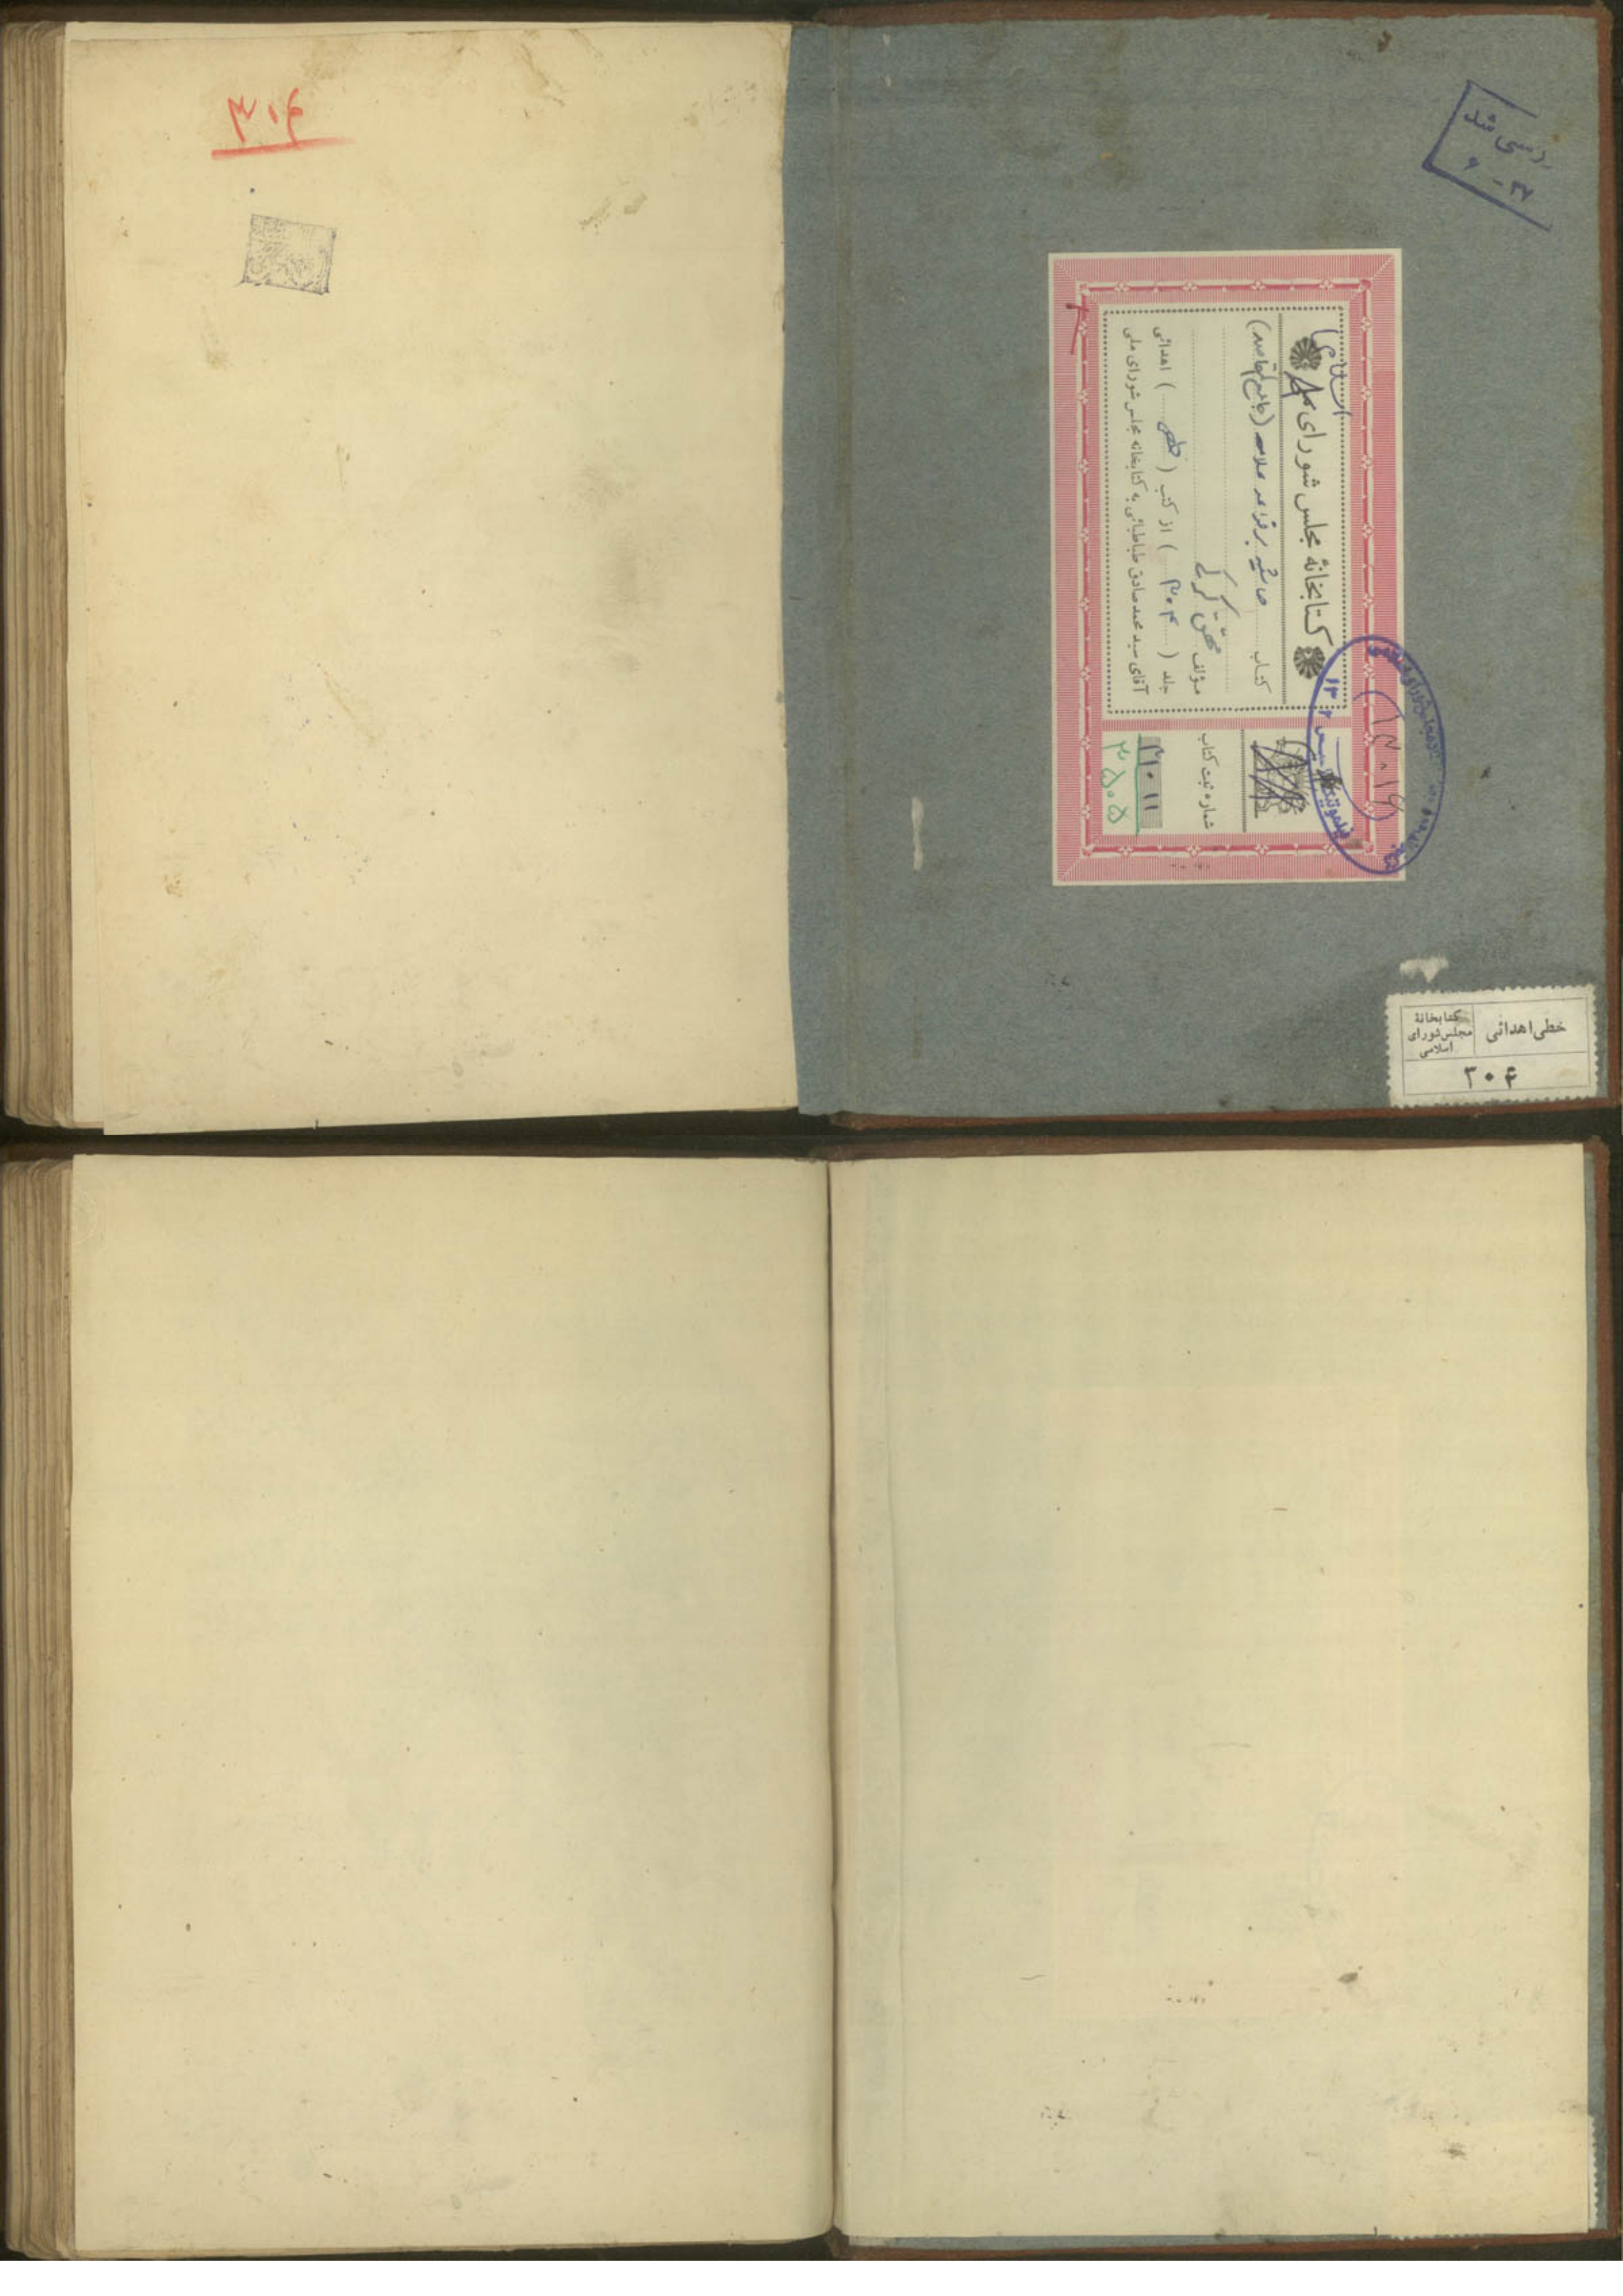 بررسی شد
۳۷ - ۶
کتابخانهٔ مجلس شورای ملی
اسلامی
کتاب حاشیه بر قواعد علامه (جامع المقاصد)
مؤلف محقق کرکی
جلد ( ۳۰۴ ) از کتب ( خطی ) اهدائی
آقای سید محمد صادق طباطبائی به کتابخانه مجلس شورای ملی
شماره ثبت کتاب
۳۱۰۱۱
۳۵۰۵
خطی اهدائی
کتابخانهٔ
مجلس شورای
اسلامی
۳۰۴
۳۰۴